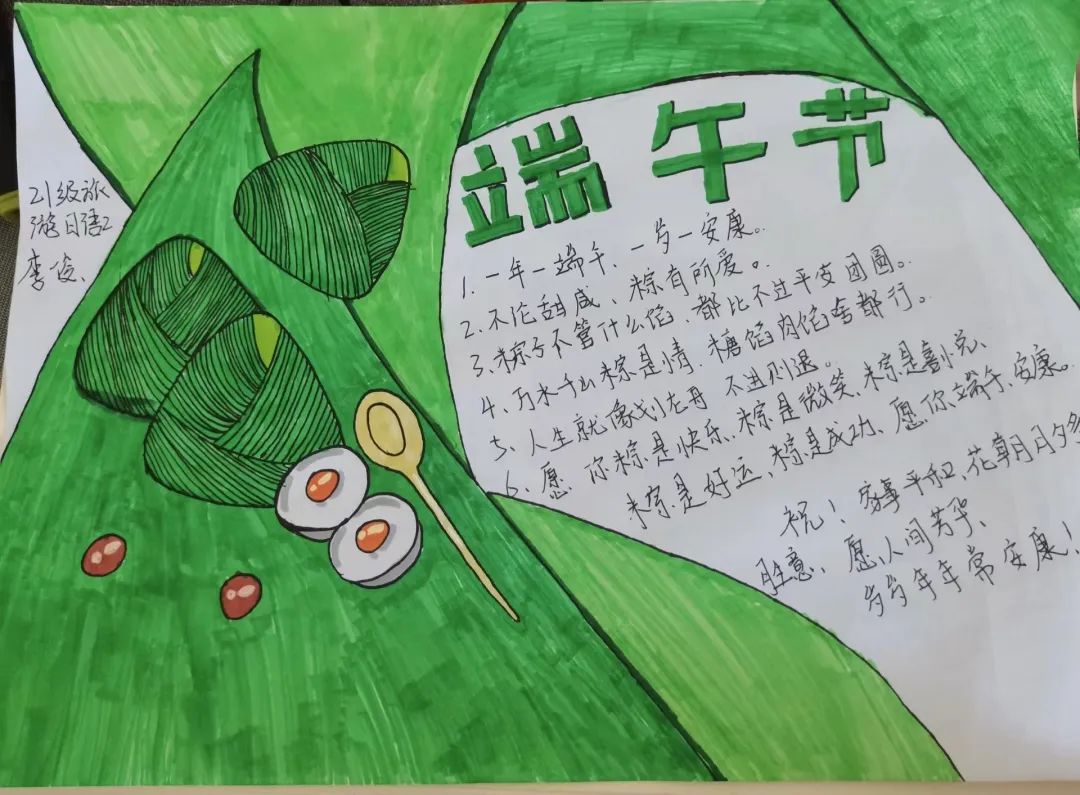 21级旅
游日语2
李俊、
端午节
1. 一年一端午、一岁一安康。
2、不论甜咸、粽有所爱。
3、粽子不管什么馅、都比不过平安团圆。
4、万水千山粽是情.糖馅肉馅啥都行。
5、人生就像划龙舟 不进则退。
6、愿 你粽是快乐、粽是微笑、粽是喜悦、
粽是好运、粽是成功、愿你端午、安康。
祝！家事平和、花朝月夕多
胜意、愿人间芳华、
岁岁年年常安康！